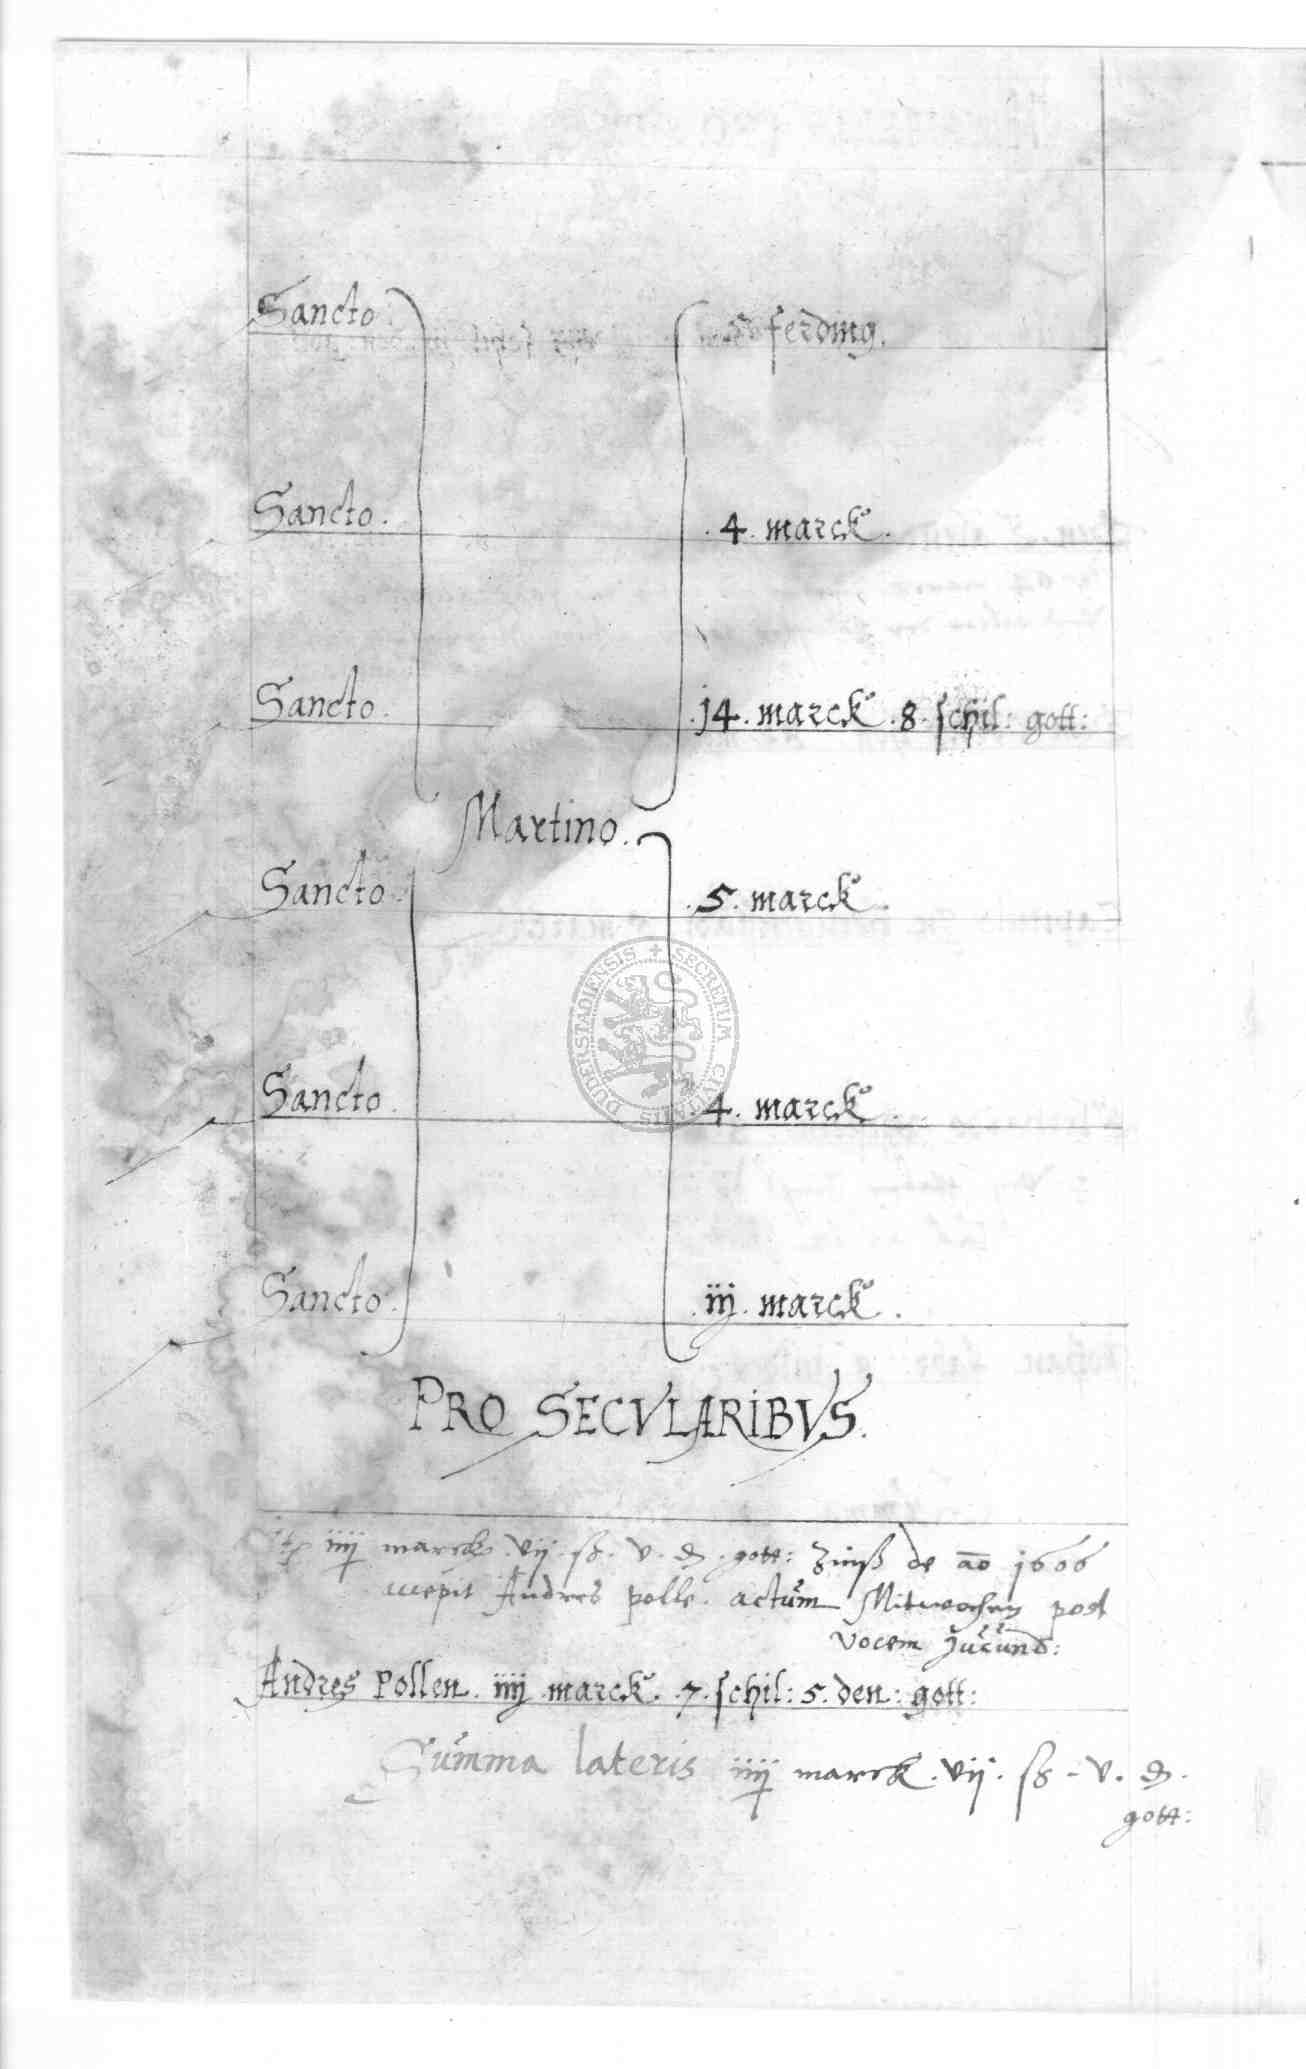 Sancto ferding.
Sancto. .4. marck.
Sancto. .j4. marck .8. schil: gott:
Martino.
Sancto. .5. marck.
Sancto. .4. marck.
Sancto. .iij. marck.
PRO SECVLARIBVS.
iiij marck. vij. ß. v. d. gott: Zinß de ao 1606
Andres polle. actum Mitwochen post
vocem Jucund:
Andres Pollen. iiij marck. .7. schil: 5. den: gott:
Summa lateris iiij marck. vij. ß. v. d.
gott:
SECRETUM CIVITATIS DUDERSTADIENSIS